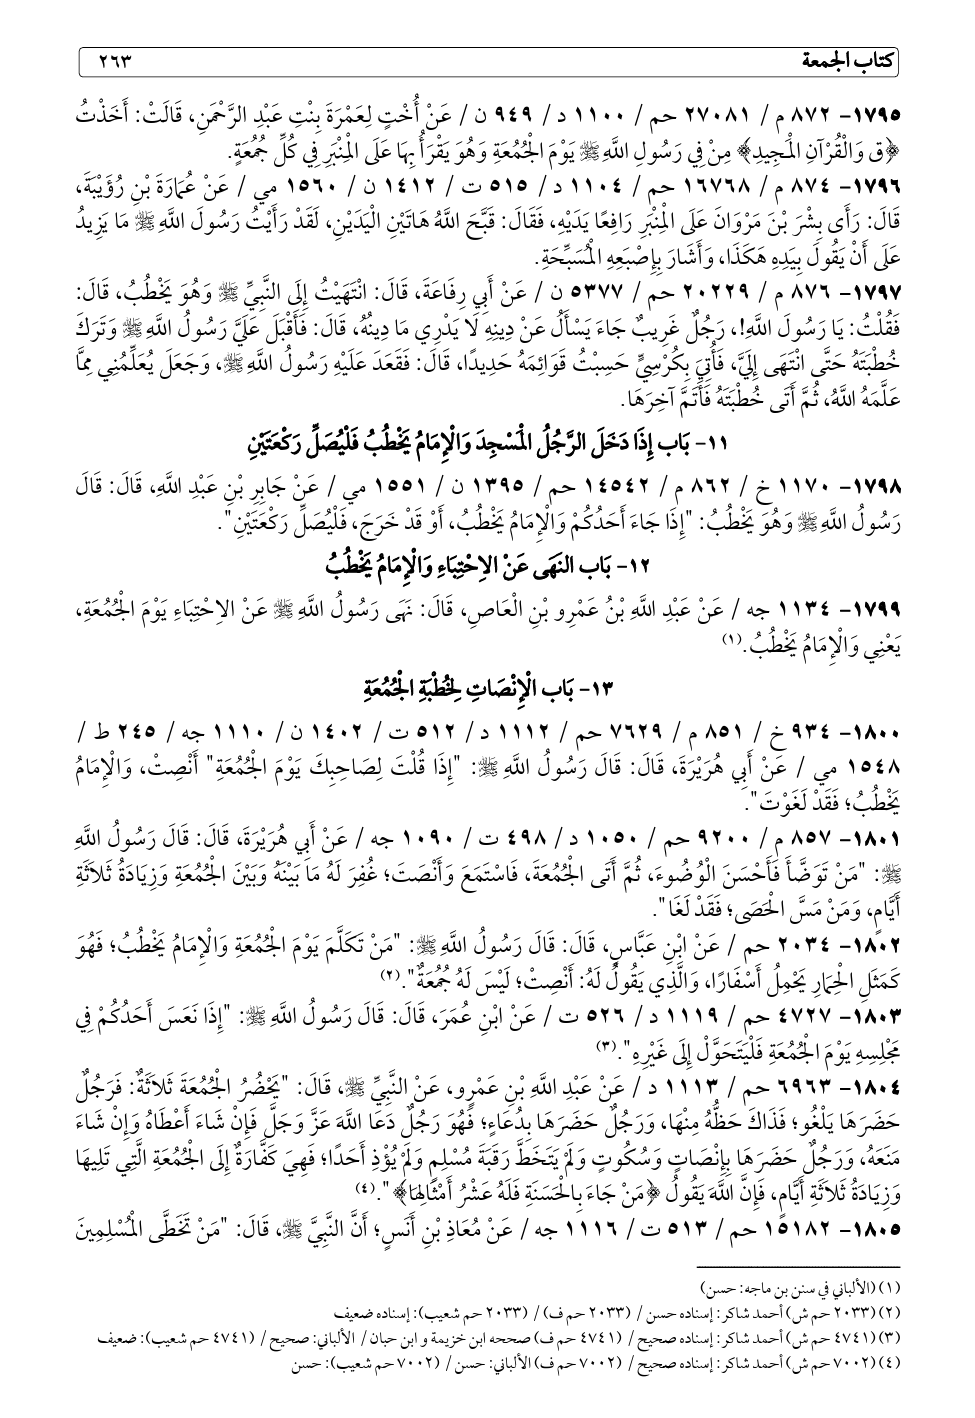 كتاب الجمعة ٢٦٣
١٧٩٥- ٨٧٢ م / ٢٧٠٨١ حم / ١١٠٠ د / ٩٤٩ ن / عَنْ أُخْتٍ لِعَمْرَةَ بِنْتِ عَبْدِ الرَّحْمَنِ، قَالَتْ: أَخَذْتُ
﴿ق وَالْقُرْآنِ الْمَجِيدِ﴾ مِنْ فِي رَسُولِ اللَّهِ ﷺ يَوْمَ الْجُمُعَةِ وَهُوَ يَقْرَأُ بِهَا عَلَى الْمِنْبَرِ فِي كُلِّ جُمُعَةٍ.
١٧٩٦- ٨٧٤ م / ١٦٧٦٨ حم / ١١٠٤ د / ٥١٥ ت / ١٤١٢ ن / ١٥٦٠ مي / عَنْ عُمَارَةَ بْنِ رُؤَيْبَةَ،
قَالَ: رَأَى بِشْرَ بْنَ مَرْوَانَ عَلَى الْمِنْبَرِ رَافِعًا يَدَيْهِ، فَقَالَ: قَبَّحَ اللَّهُ هَاتَيْنِ الْيَدَيْنِ، لَقَدْ رَأَيْتُ رَسُولَ اللَّهِ ﷺ مَا يَزِيدُ
عَلَى أَنْ يَقُولَ بِيَدِهِ هَكَذَا، وَأَشَارَ بِإِصْبَعِهِ الْمُسَبِّحَةِ.
١٧٩٧- ٨٧٦ م / ٢٠٢٢٩ حم / ٥٣٧٧ ن / عَنْ أَبِي رِفَاعَةَ، قَالَ: انْتَهَيْتُ إِلَى النَّبِيِّ ﷺ وَهُوَ يَخْطُبُ، قَالَ:
فَقُلْتُ: يَا رَسُولَ اللَّهِ!، رَجُلٌ غَرِيبٌ جَاءَ يَسْأَلُ عَنْ دِينِهِ لَا يَدْرِي مَا دِينُهُ، قَالَ: فَأَقْبَلَ عَلَيَّ رَسُولُ اللَّهِ ﷺ وَتَرَكَ
خُطْبَتَهُ حَتَّى انْتَهَى إِلَيَّ، فَأُتِيَ بِكُرْسِيٍّ حَسِبْتُ قَوَائِمَهُ حَدِيدًا، قَالَ: فَقَعَدَ عَلَيْهِ رَسُولُ اللَّهِ ﷺ، وَجَعَلَ يُعَلِّمُنِي مِمَّا
عَلَّمَهُ اللَّهُ، ثُمَّ أَتَى خُطْبَتَهُ فَأَتَمَّ آخِرَهَا.
١١- بَاب إِذَا دَخَلَ الرَّجُلُ الْمَسْجِدَ وَالْإِمَامُ يَخْطُبُ فَلْيُصَلِّ رَكْعَتَيْنِ
١٧٩٨- ١١٧٠ خ / ٨٦٢ م / ١٤٥٤٢ حم / ١٣٩٥ ن / ١٥٥١ مي / عَنْ جَابِرِ بْنِ عَبْدِ اللَّهِ، قَالَ: قَالَ
رَسُولُ اللَّهِ ﷺ وَهُوَ يَخْطُبُ: "إِذَا جَاءَ أَحَدُكُمْ وَالْإِمَامُ يَخْطُبُ، أَوْ قَدْ خَرَجَ، فَلْيُصَلِّ رَكْعَتَيْنِ".
١٢- بَاب النَهَى عَنْ الِاحْتِبَاءِ وَالْإِمَامُ يَخْطُبُ
١٧٩٩- ١١٣٤ جه / عَنْ عَبْدِ اللَّهِ بْنُ عَمْرِو بْنِ الْعَاصِ، قَالَ: نَهَى رَسُولُ اللَّهِ ﷺ عَنْ الِاحْتِبَاءِ يَوْمَ الْجُمُعَةِ،
يَعْنِي وَالْإِمَامُ يَخْطُبُ.(١)
١٣- بَاب الْإِنْصَاتِ لِخُطْبَةِ الْجُمُعَةِ
١٨٠٠- ٩٣٤ خ / ٨٥١ م / ٧٦٢٩ حم / ١١١٢ د / ٥١٢ ت / ١٤٠٢ ن / ١١١٠ جه / ٢٤٥ ط /
١٥٤٨ مي / عَنْ أَبِي هُرَيْرَةَ، قَالَ: قَالَ رَسُولُ اللَّهِ ﷺ: "إِذَا قُلْتَ لِصَاحِبِكَ يَوْمَ الْجُمُعَةِ" أَنْصِتْ، وَالْإِمَامُ
يَخْطُبُ؛ فَقَدْ لَغَوْتَ".
١٨٠١- ٨٥٧ م / ٩٢٠٠ حم / ١٠٥٠ د / ٤٩٨ ت / ١٠٩٠ جه / عَنْ أَبِي هُرَيْرَةَ، قَالَ: قَالَ رَسُولُ اللَّهِ
ﷺ: "مَنْ تَوَضَّأَ فَأَحْسَنَ الْوُضُوءَ، ثُمَّ أَتَى الْجُمُعَةَ، فَاسْتَمَعَ وَأَنْصَتَ؛ غُفِرَ لَهُ مَا بَيْنَهُ وَبَيْنَ الْجُمُعَةِ وَزِيَادَةُ ثَلَاثَةِ
أَيَّامٍ، وَمَنْ مَسَّ الْحَصَى؛ فَقَدْ لَغَا".
١٨٠٢- ٢٠٣٤ حم / عَنْ ابْنِ عَبَّاسٍ، قَالَ: قَالَ رَسُولُ اللَّهِ ﷺ: "مَنْ تَكَلَّمَ يَوْمَ الْجُمُعَةِ وَالْإِمَامُ يَخْطُبُ؛ فَهُوَ
كَمَثَلِ الْحِمَارِ يَحْمِلُ أَسْفَارًا، وَالَّذِي يَقُولُ لَهُ: أَنْصِتْ؛ لَيْسَ لَهُ جُمُعَةٌ".(٢)
١٨٠٣- ٤٧٢٧ حم / ١١١٩ د / ٥٢٦ ت / عَنْ ابْنِ عُمَرَ، قَالَ: قَالَ رَسُولُ اللَّهِ ﷺ: "إِذَا نَعَسَ أَحَدُكُمْ فِي
مَجْلِسِهِ يَوْمَ الْجُمُعَةِ فَلْيَتَحَوَّلْ إِلَى غَيْرِهِ".(٣)
١٨٠٤- ٦٩٦٣ حم / ١١١٣ د / عَنْ عَبْدِ اللَّهِ بْنِ عَمْرٍو، عَنْ النَّبِيِّ ﷺ، قَالَ: "يَحْضُرُ الْجُمُعَةَ ثَلَاثَةٌ: فَرَجُلٌ
حَضَرَهَا يَلْغُو؛ فَذَاكَ حَظُّهُ مِنْهَا، وَرَجُلٌ حَضَرَهَا بِدُعَاءٍ؛ فَهُوَ رَجُلٌ دَعَا اللَّهَ عَزَّ وَجَلَّ فَإِنْ شَاءَ أَعْطَاهُ وَإِنْ شَاءَ
مَنَعَهُ، وَرَجُلٌ حَضَرَهَا بِإِنْصَاتٍ وَسُكُوتٍ وَلَمْ يَتَخَطَّ رَقَبَةَ مُسْلِمٍ وَلَمْ يُؤْذِ أَحَدًا؛ فَهِيَ كَفَّارَةٌ إِلَى الْجُمُعَةِ الَّتِي تَلِيهَا
وَزِيَادَةُ ثَلَاثَةِ أَيَّامٍ، فَإِنَّ اللَّهَ يَقُولُ ﴿مَنْ جَاءَ بِالْحَسَنَةِ فَلَهُ عَشْرُ أَمْثَالِهَا﴾".(٤)
١٨٠٥- ١٥١٨٢ حم / ٥١٣ ت / ١١١٦ جه / عَنْ مُعَاذِ بْنِ أَنَسٍ؛ أَنَّ النَّبِيَّ ﷺ، قَالَ: "مَنْ تَخَطَّى الْمُسْلِمِينَ
(١) (الألباني في سنن بن ماجه: حسن)
(٢) (٢٠٣٣ حم ش) أحمد شاكر: إسناده حسن / (٢٠٣٣ حم ف) / (٢٠٣٣ حم شعيب): إسناده ضعيف
(٣) (٤٧٤١ حم ش) أحمد شاكر: إسناده صحيح / (٤٧٤١ حم ف) صححه ابن خزيمة و ابن حبان / الألباني: صحيح / (٤٧٤١ حم شعيب): ضعيف
(٤) (٧٠٠٢ حم ش) أحمد شاكر: إسناده صحيح / (٧٠٠٢ حم ف) الألباني: حسن / (٧٠٠٢ حم شعيب): حسن